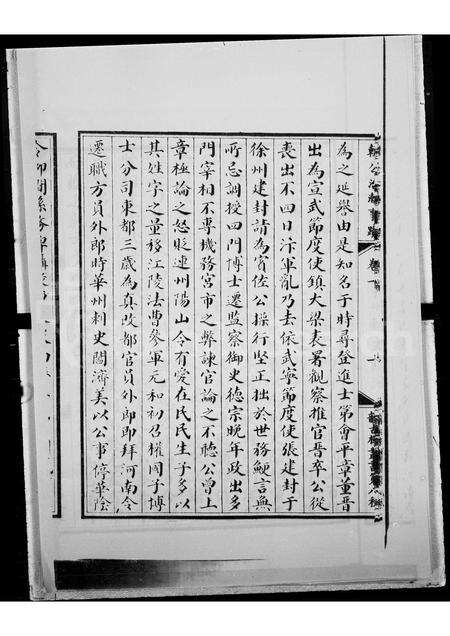 為之延譽由是知名于時尋登進士第會平章董晉
出為宣武節度使鎮大梁表署觀察推官晉卒公從
喪出不四日汴軍亂乃去依武寧節度使張建封于
徐州建封請為賓佐公操行堅正拙於世務鯁言無
所忌調授四門博士遷監察御史德宗晚年政出多
門宰相不專機務宮市之弊諫官論之不聽公曾上
章極論之怒貶連州陽山令有愛在民民生子多以
其姓字之量移江陵法曹參軍元和初召權國子博
士分司東都三歲為真改都官員外郎即拜河南令
遷職方員外郎時華州刺史閻濟美以公事停華陰